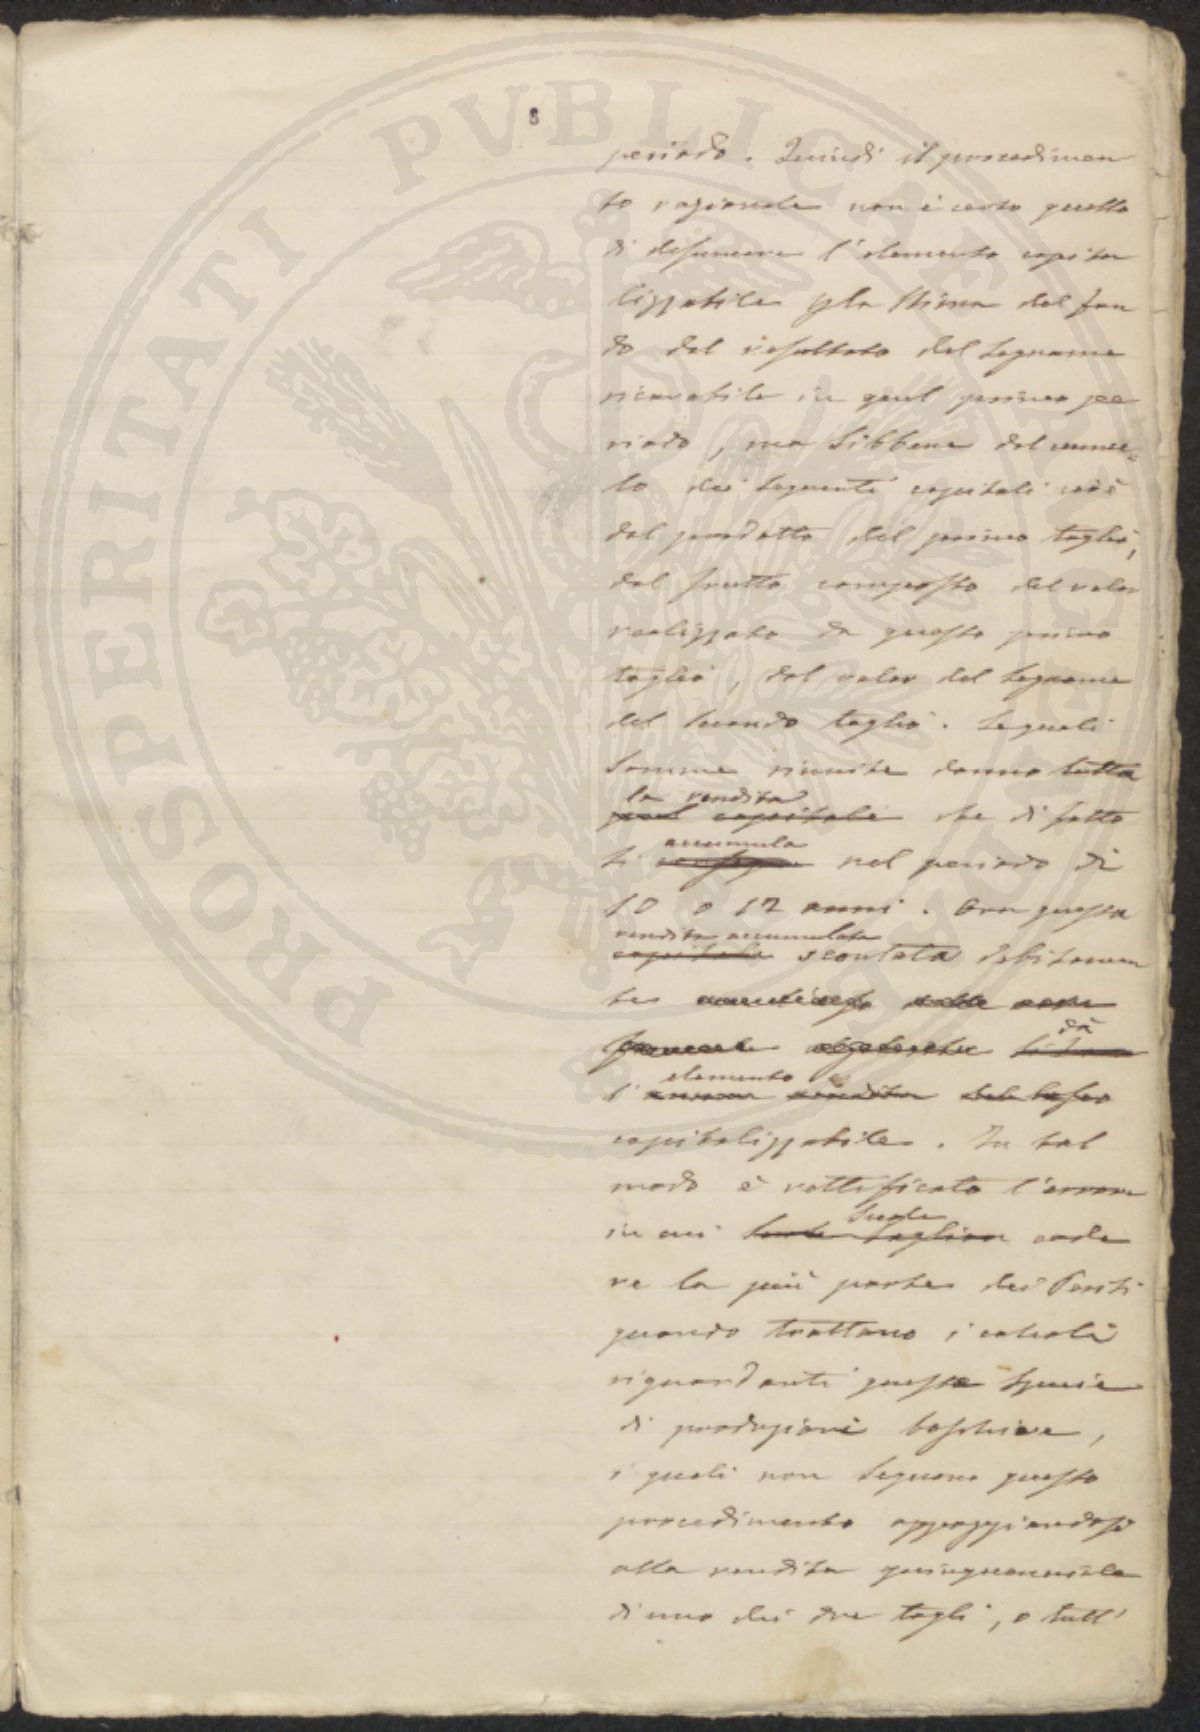 PROSPERITATI PVBLICAE AVGENDAE
8
periodo. Quindi il procedimen
to razionale non è certo quello
di desumere l'elemento capita
lizzabile p la stima del fon
do dal resultato del legname
ricavabile in quel primo pe
riodo, ma sibbene dal cumu-
lo dei seguenti capitali cioè
dal prodotto del primo taglio,
dal frutto composto del valor
realizzato da questo primo
taglio, dal valor del legname
del secondo taglio. Le quali
somme riunite danno tutta
la rendita
quel capitale che di fatto
accumula
si nel periodo di
10 o 12 anni. Ora questa
rendita accumulata
capitale scontata debitamen
te
dà
elemento
l' annua rendita del bosco
capitalizzabile. In tal
modo è rettificato l'errore
suole
in cui cade
re la più parte dei Periti
quando trattano i calcoli
riguardanti questa specie
di produzioni boschive,
i quali non seguono questo
procedimento appoggiandosi
alla rendita quinquennale
di uno dei due tagli, o tutt'